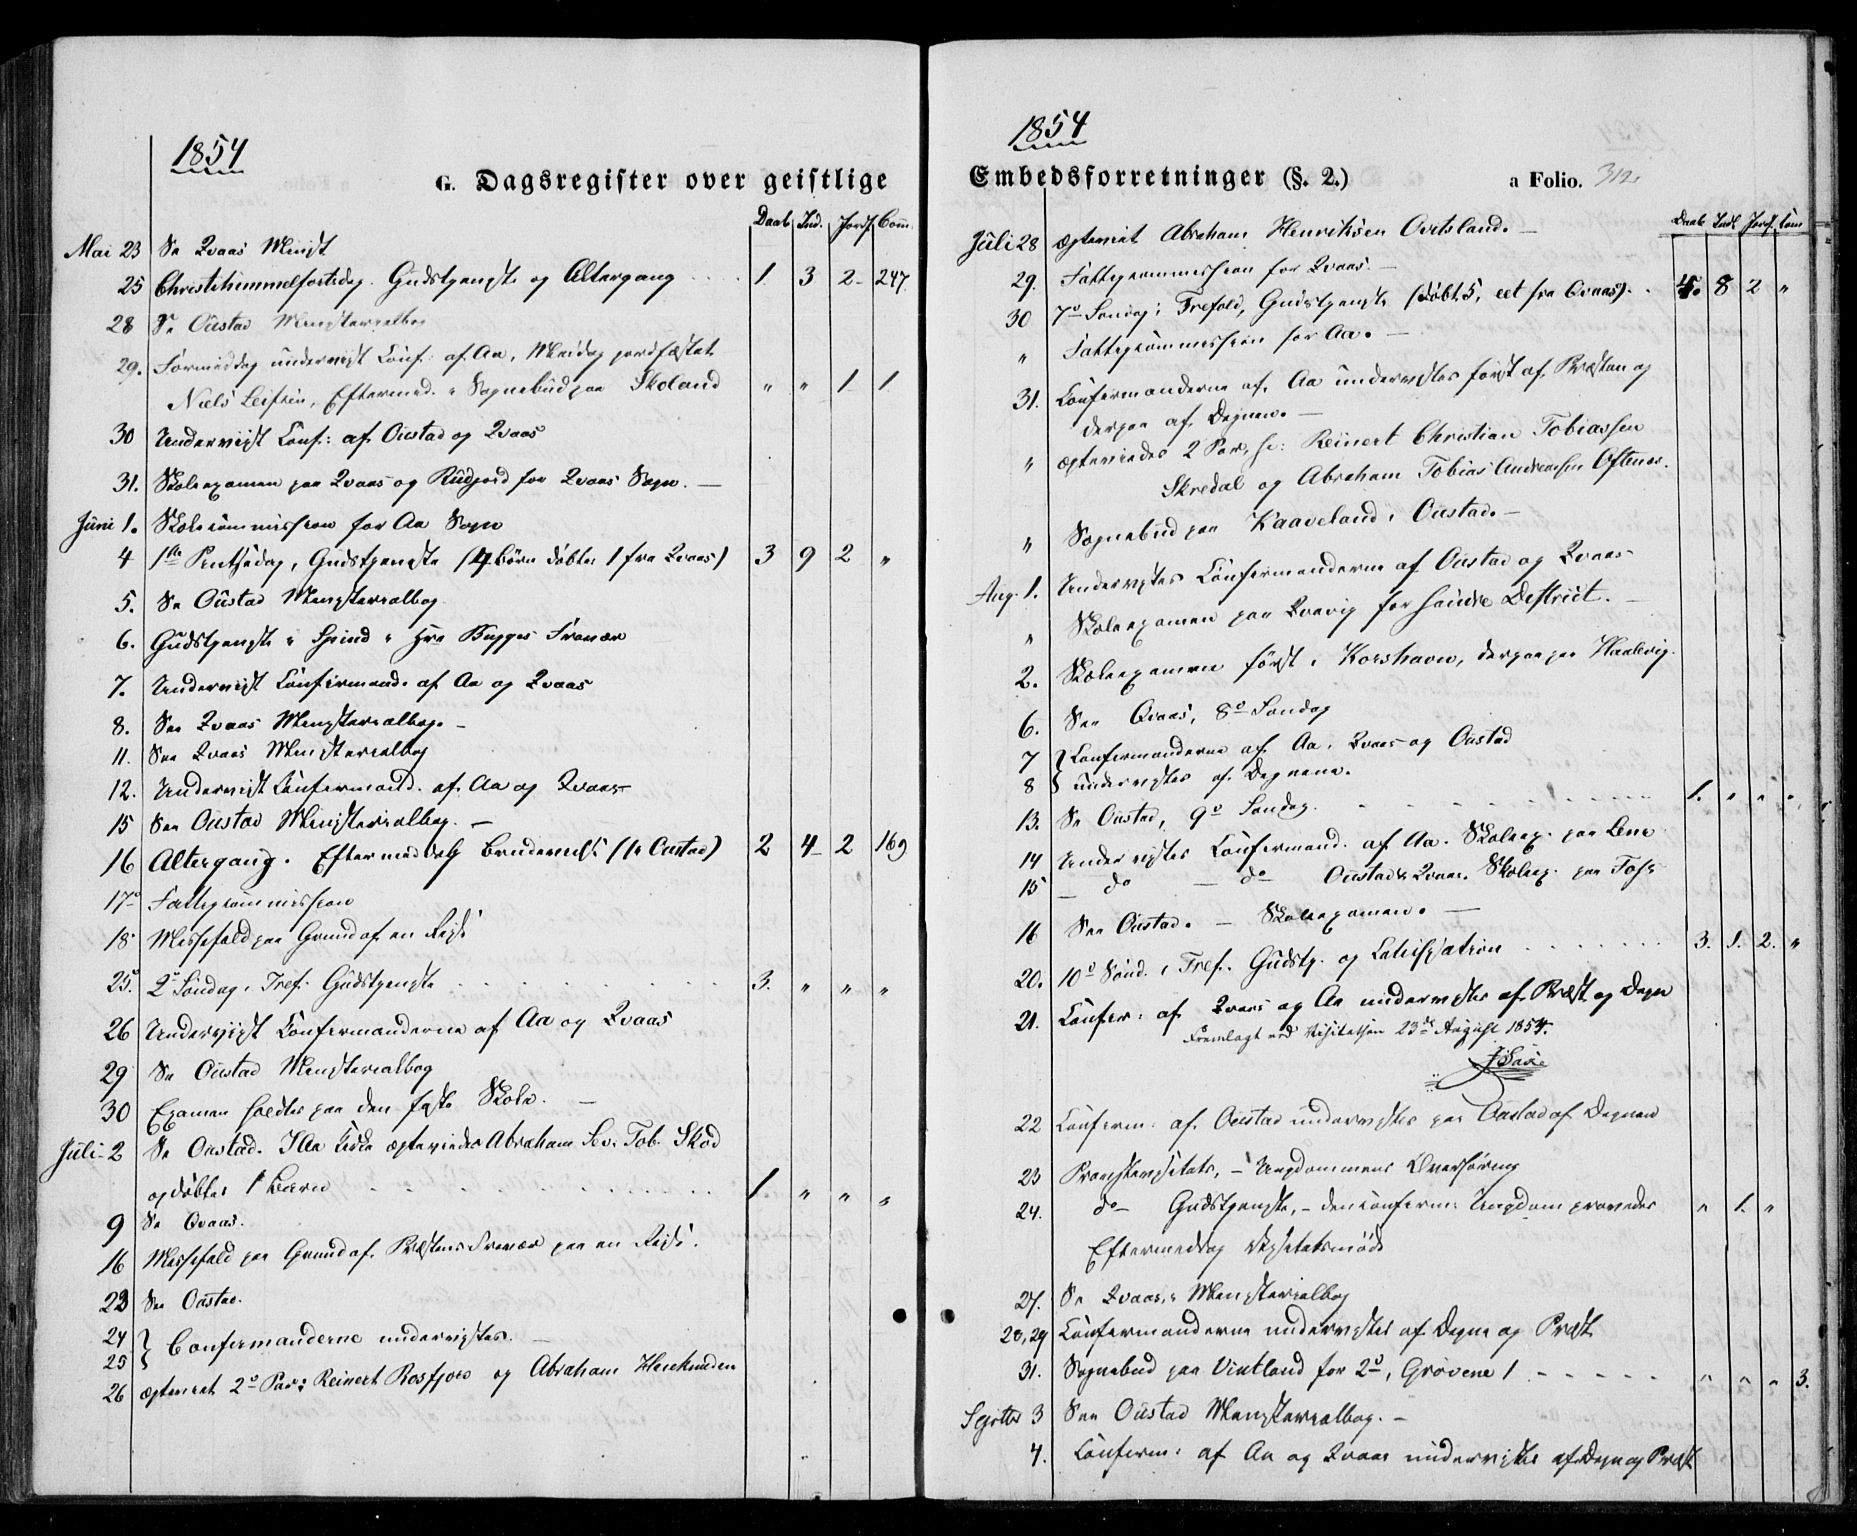 1854
G. Dagsregister over geistlige
Daab Ind. Jordf. Com.
Mai 23 Se Qvaas Minist
25 Christihimmelfartsdag. Gudstjeneste og Altergang 1 3 2 247
28 Se Oustad Ministerialbog
29. Formiddag undervist Conf: af Aa, Middag jordfæstet
Niels Leifsen, Eftermid. i Sognebud paa Skoland " " 1 1
30 Undervist Conf: af Oustad og Qvaas
31. Skoleexamen paa Qvaas og Rudjord for Qvaas Sogn. —
Juni 1. Skolecommission for Aa Sogn
4 1ste Pintsedag, Gudstjeneste (4 børn døbtes 1 fra Qvaas) 3 9 2 "
5. Se Oustad Ministerialbog
6. Gudstjeneste i Spind i Hrr Bugges Fravær
7. Undervist Confirmand. af Aa og Qvaas
8. See Qvaas Ministerialbog. —
11. See Qvaas Ministerialbog
12. Undervist Confirmand. af Aa og Qvaas
15 See Oustad Ministerialbog. —
16 Altergang. Eftermiddag Brudevielse (Se Oustad) 2 4 2 169
17 Fattigcommission
18 Messefald paa Grund af en Reise
25. 2 Søndag i Tref. Gudstjeneste 3. " " "
26 Undervist Confirmanderne af Aa og Qvaas
29 Se Oustad Ministerialbog
30 Examen holdtes paa den faste Skole. —
Juli 2 Se Oustad. I Aa Kirke ægteviedes Abraham Sev: Tob. Skod
og døbtes 1 Barn 1. " " "
9 Se Qvaas.
16 Messefald paa Grund af Præstens Fravær paa en Reise.
23 See Oustad.
24
25 } Confirmanderne undervistes. —
26 ægteviet 2 Par: Reinert Rosfjord og Abraham
1854
Embedsforretninger (§. 2.) a Folio. 312.
Daab Indl Jordf. Com
Juli 28 ægteviet Abraham Henriksen Ovitsland. —
29. Fattigcommission for Qvaas. —
30 7de Søndag i Trefold, Gudstjeneste (døbt 5, eet fra Qvaas). 4. 8 2 "
" Fattigcommission for Aa. —
31. Confirmanderne af Aa undervistes først af Præsten og
derpaa af Degnen. —
" ægteviedes 2 Par, sc: Reinert Christian Tobiassen
Skredal og Abraham Tobias Andreassen Oftenes.
" Sognebud paa Kaaveland i Oustad. —
Aug. 1. Undervistes Confirmanderne af Oustad og Qvaas
" Skoleexamen paa Qvavig for søndre District. —
2. Skoleexamen først i Korshavn, derpaa paa Haalevig.
6. See Qvaas, 8de Søndag
7 } Confirmanderne af Aa, Qvaas og Oustad
8 } undervistes af Degnene.
13. Se Oustad, 9de Søndag. 1. " " "
14 Undervistes Confirmand. af Aa. Skoleex. paa Lene
15 — do — do Oustad & Qvaas. Skoleex. paa Foss
16 See Oustad. — Skoleexamen. —
20. 10de Sønd. i Tref. Gudstj. og Catechisation 3. 1. 2. "
21. Confirm: af Qvaas og Aa undervistes af Præst og Degn
Fremlagt ved Visitatsen 23de August 1854.
22 Confirm: af Oustad undervistes paa Oustad af Degnen
23 Provstevisitats, — Ungdommens Overhøring
24. do — Gudstjeneste, — den confirm: Ungdom prøvedes " 1. "
Eftermiddag Visitatsmøde
27. Se Qvaas, i Ministerialbog
28, 29 Confirmanderne undervistes af Degn og Præst
31. Sognebud paa Vintland for 2de, Grøvene 1 " " " 3.
Septbr 3 See Oustad Ministerialbog. —
4. Confirm: af Aa og Qvaas undervistes af Degn og Præst